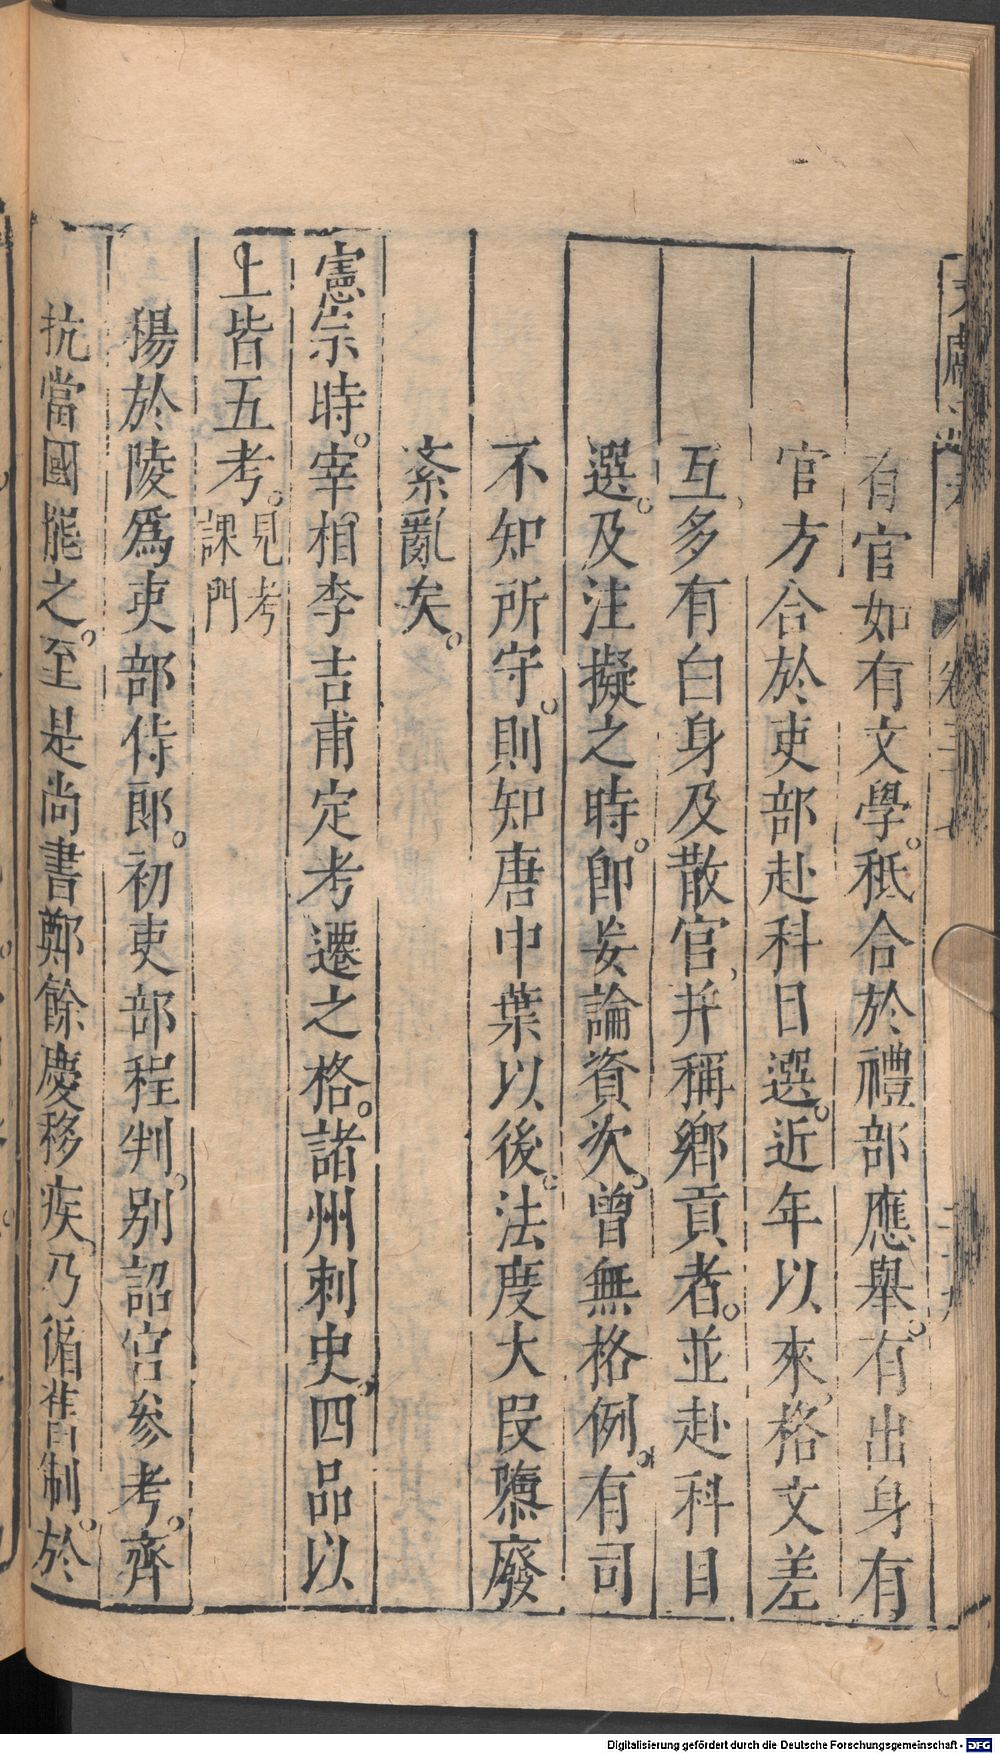 有官如有文學。秪合於禮部應舉。有出身有
官方合於吏部赴科目選。近年以來格文差
互、多有白身及散官、并稱鄉貢者。並赴科目
選。及注擬之時。即妄論資次。曾無格例。有司
不知所守。則知唐中葉以後。法度大段隳廢
紊亂矣。
憲宗時。宰相李吉甫定考遷之格。諸州刺史。四品以
上皆五考。見考課門
楊於陵爲吏部侍郎。初吏部程判。別詔官參考。齊
抗當國罷之。至是尚書鄭餘慶移疾。乃循舊制。於
Digitalisierung gefördert durch die Deutsche Forschungsgemeinschaft - DFG